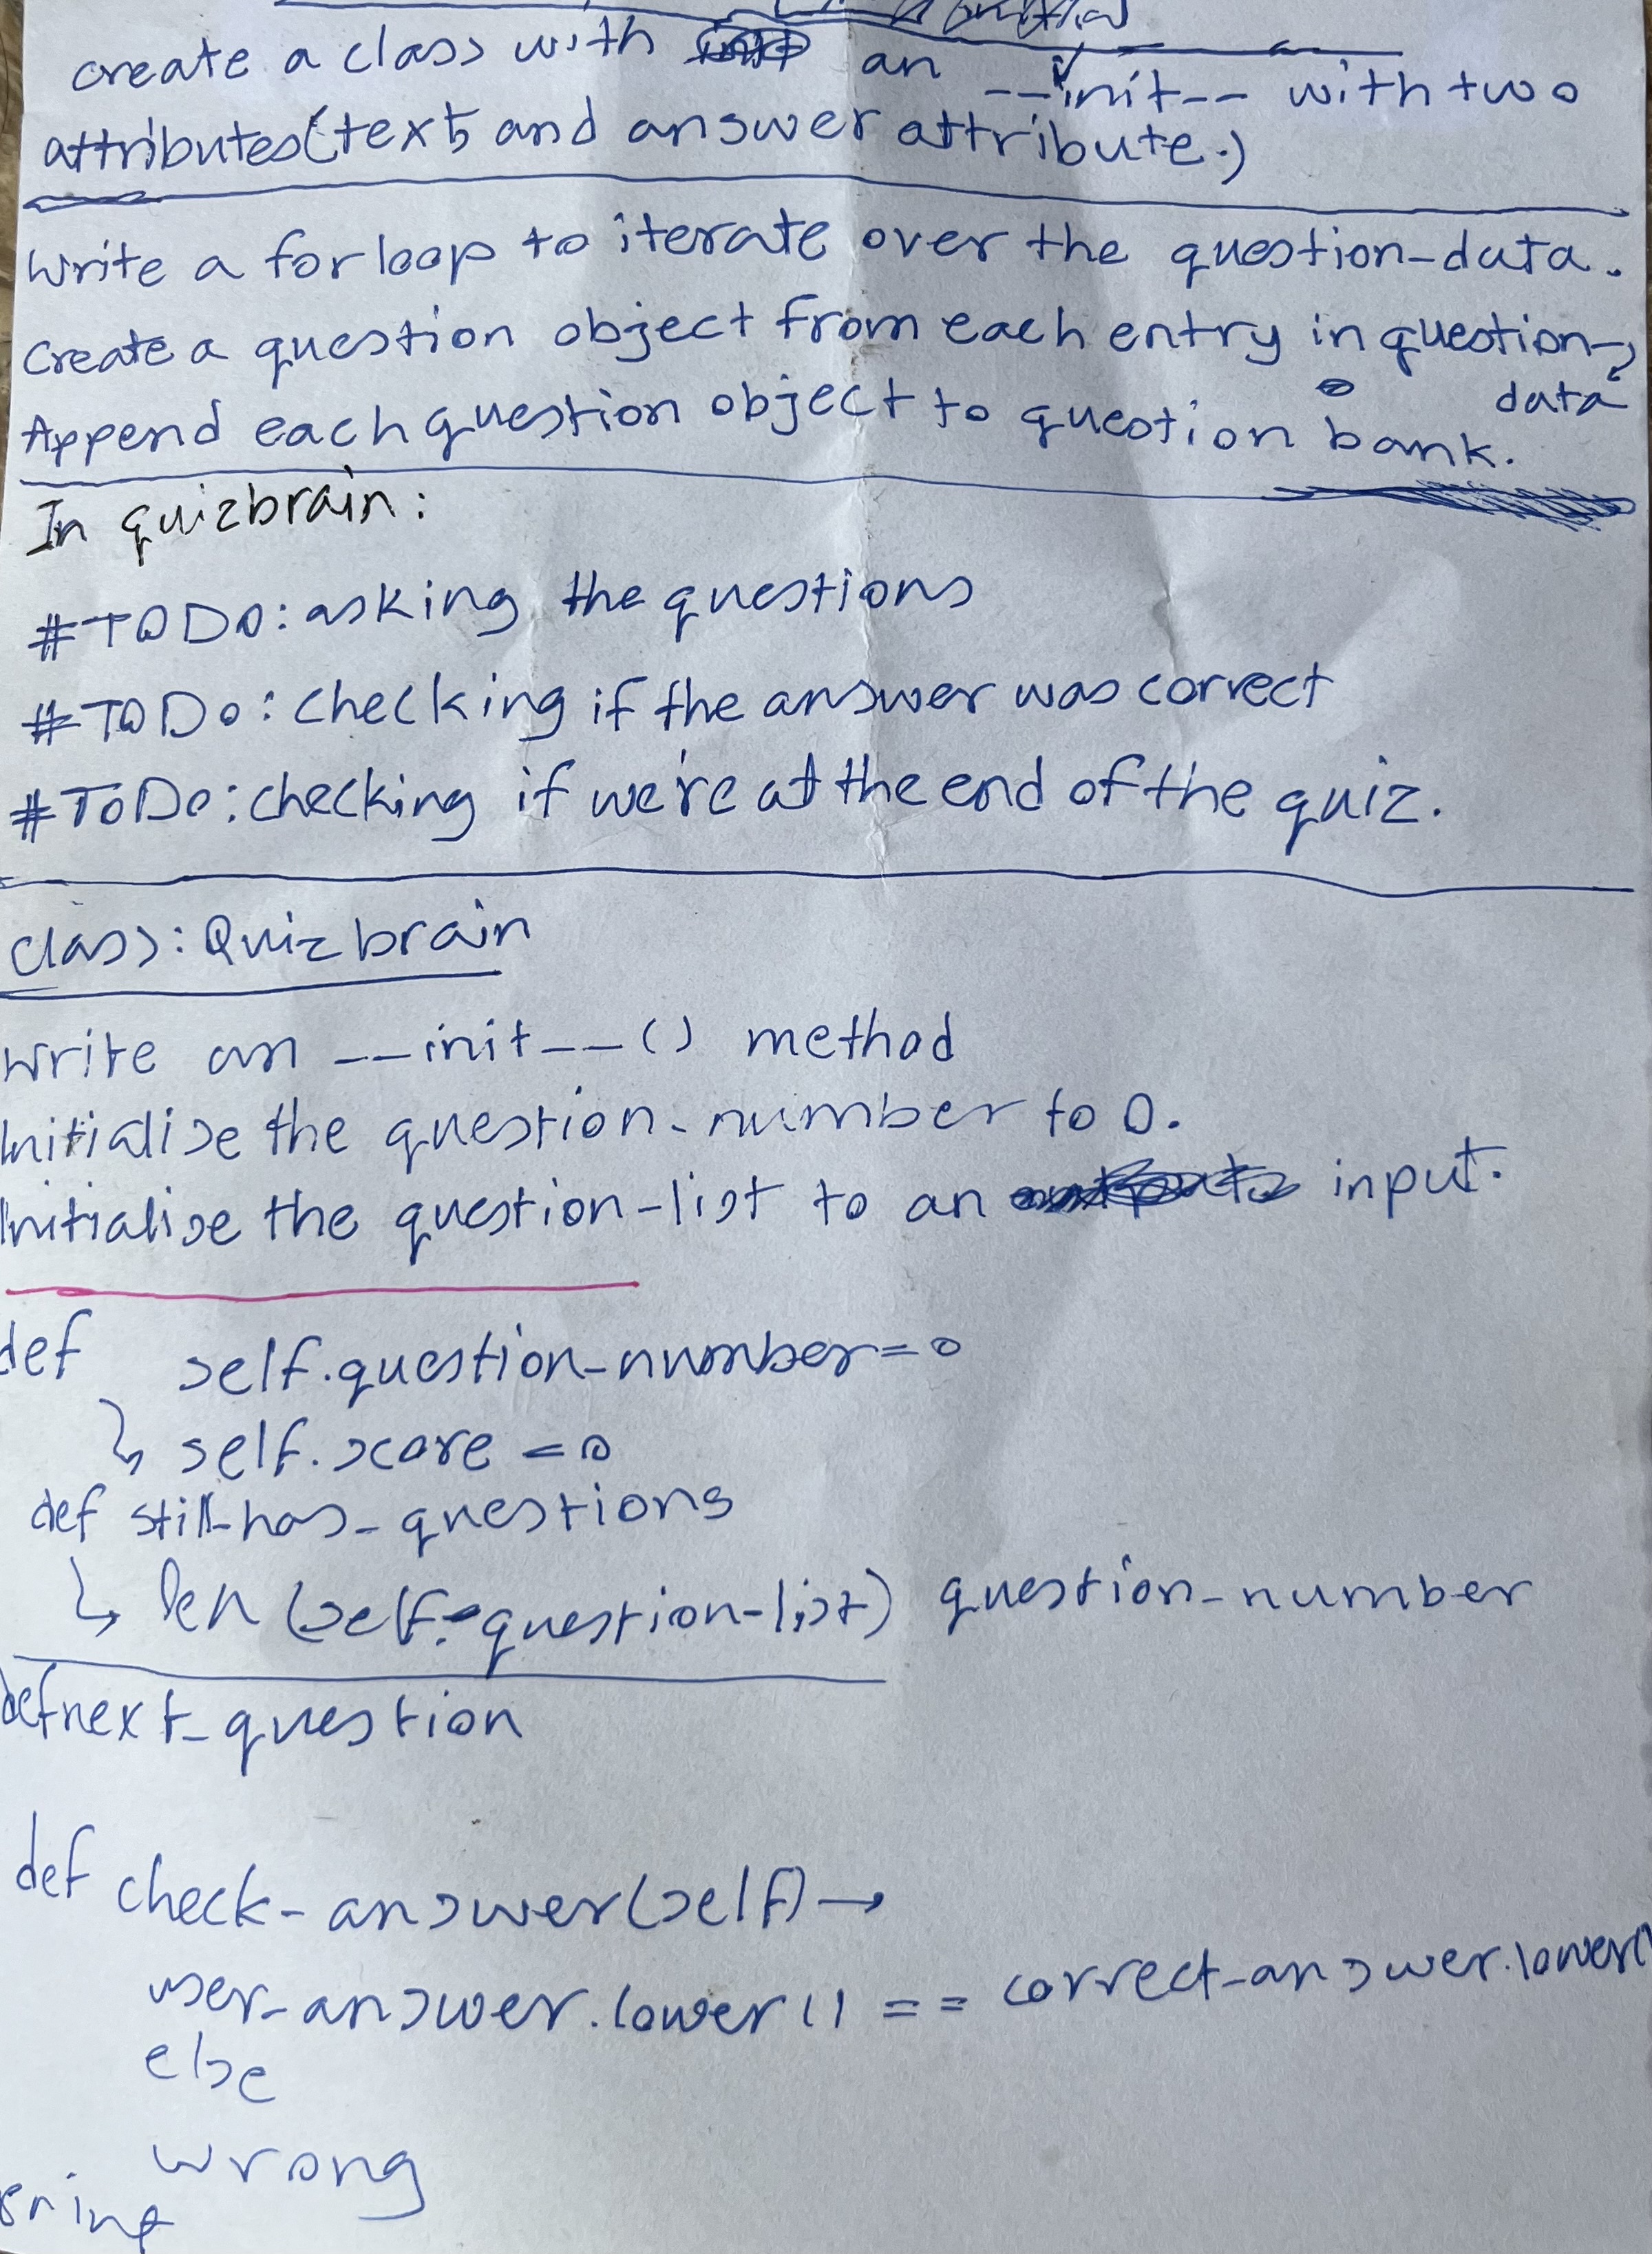 create a class with an __init__ with two
attributes(text and answer attribute.)
Write a for loop to iterate over the question-data.
Create a question object from each entry in question-
data
Append each question object to question bank.
In quizbrain:
#TODO: asking the questions
#TODO: checking if the answer was correct
#TODO: checking if we're at the end of the quiz.
class: Quizbrain
write an __init__() method
Initialise the question-number to 0.
Initialise the question-list to an input.
def self.question-number=0
↳ self.score =0
def still-has-questions
↳ len (self.question-list) question-number
def next-question
def check-answer(self) →
user-answer.lower() == correct-answer.lower()
else
wrong